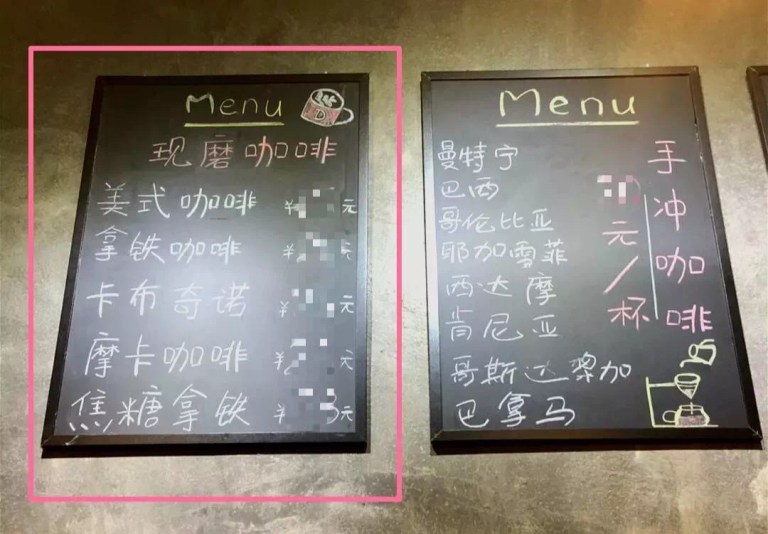 Menu
现磨咖啡
美式咖啡 ¥ 元
拿铁咖啡 ¥ 元
卡布奇诺 ¥ 元
摩卡咖啡 ¥ 元
焦糖拿铁 ¥ 元
Menu
曼特宁
巴西
哥伦比亚
耶加雪菲
西达摩
肯尼亚
哥斯达黎加
巴拿马
元/杯
手冲咖啡